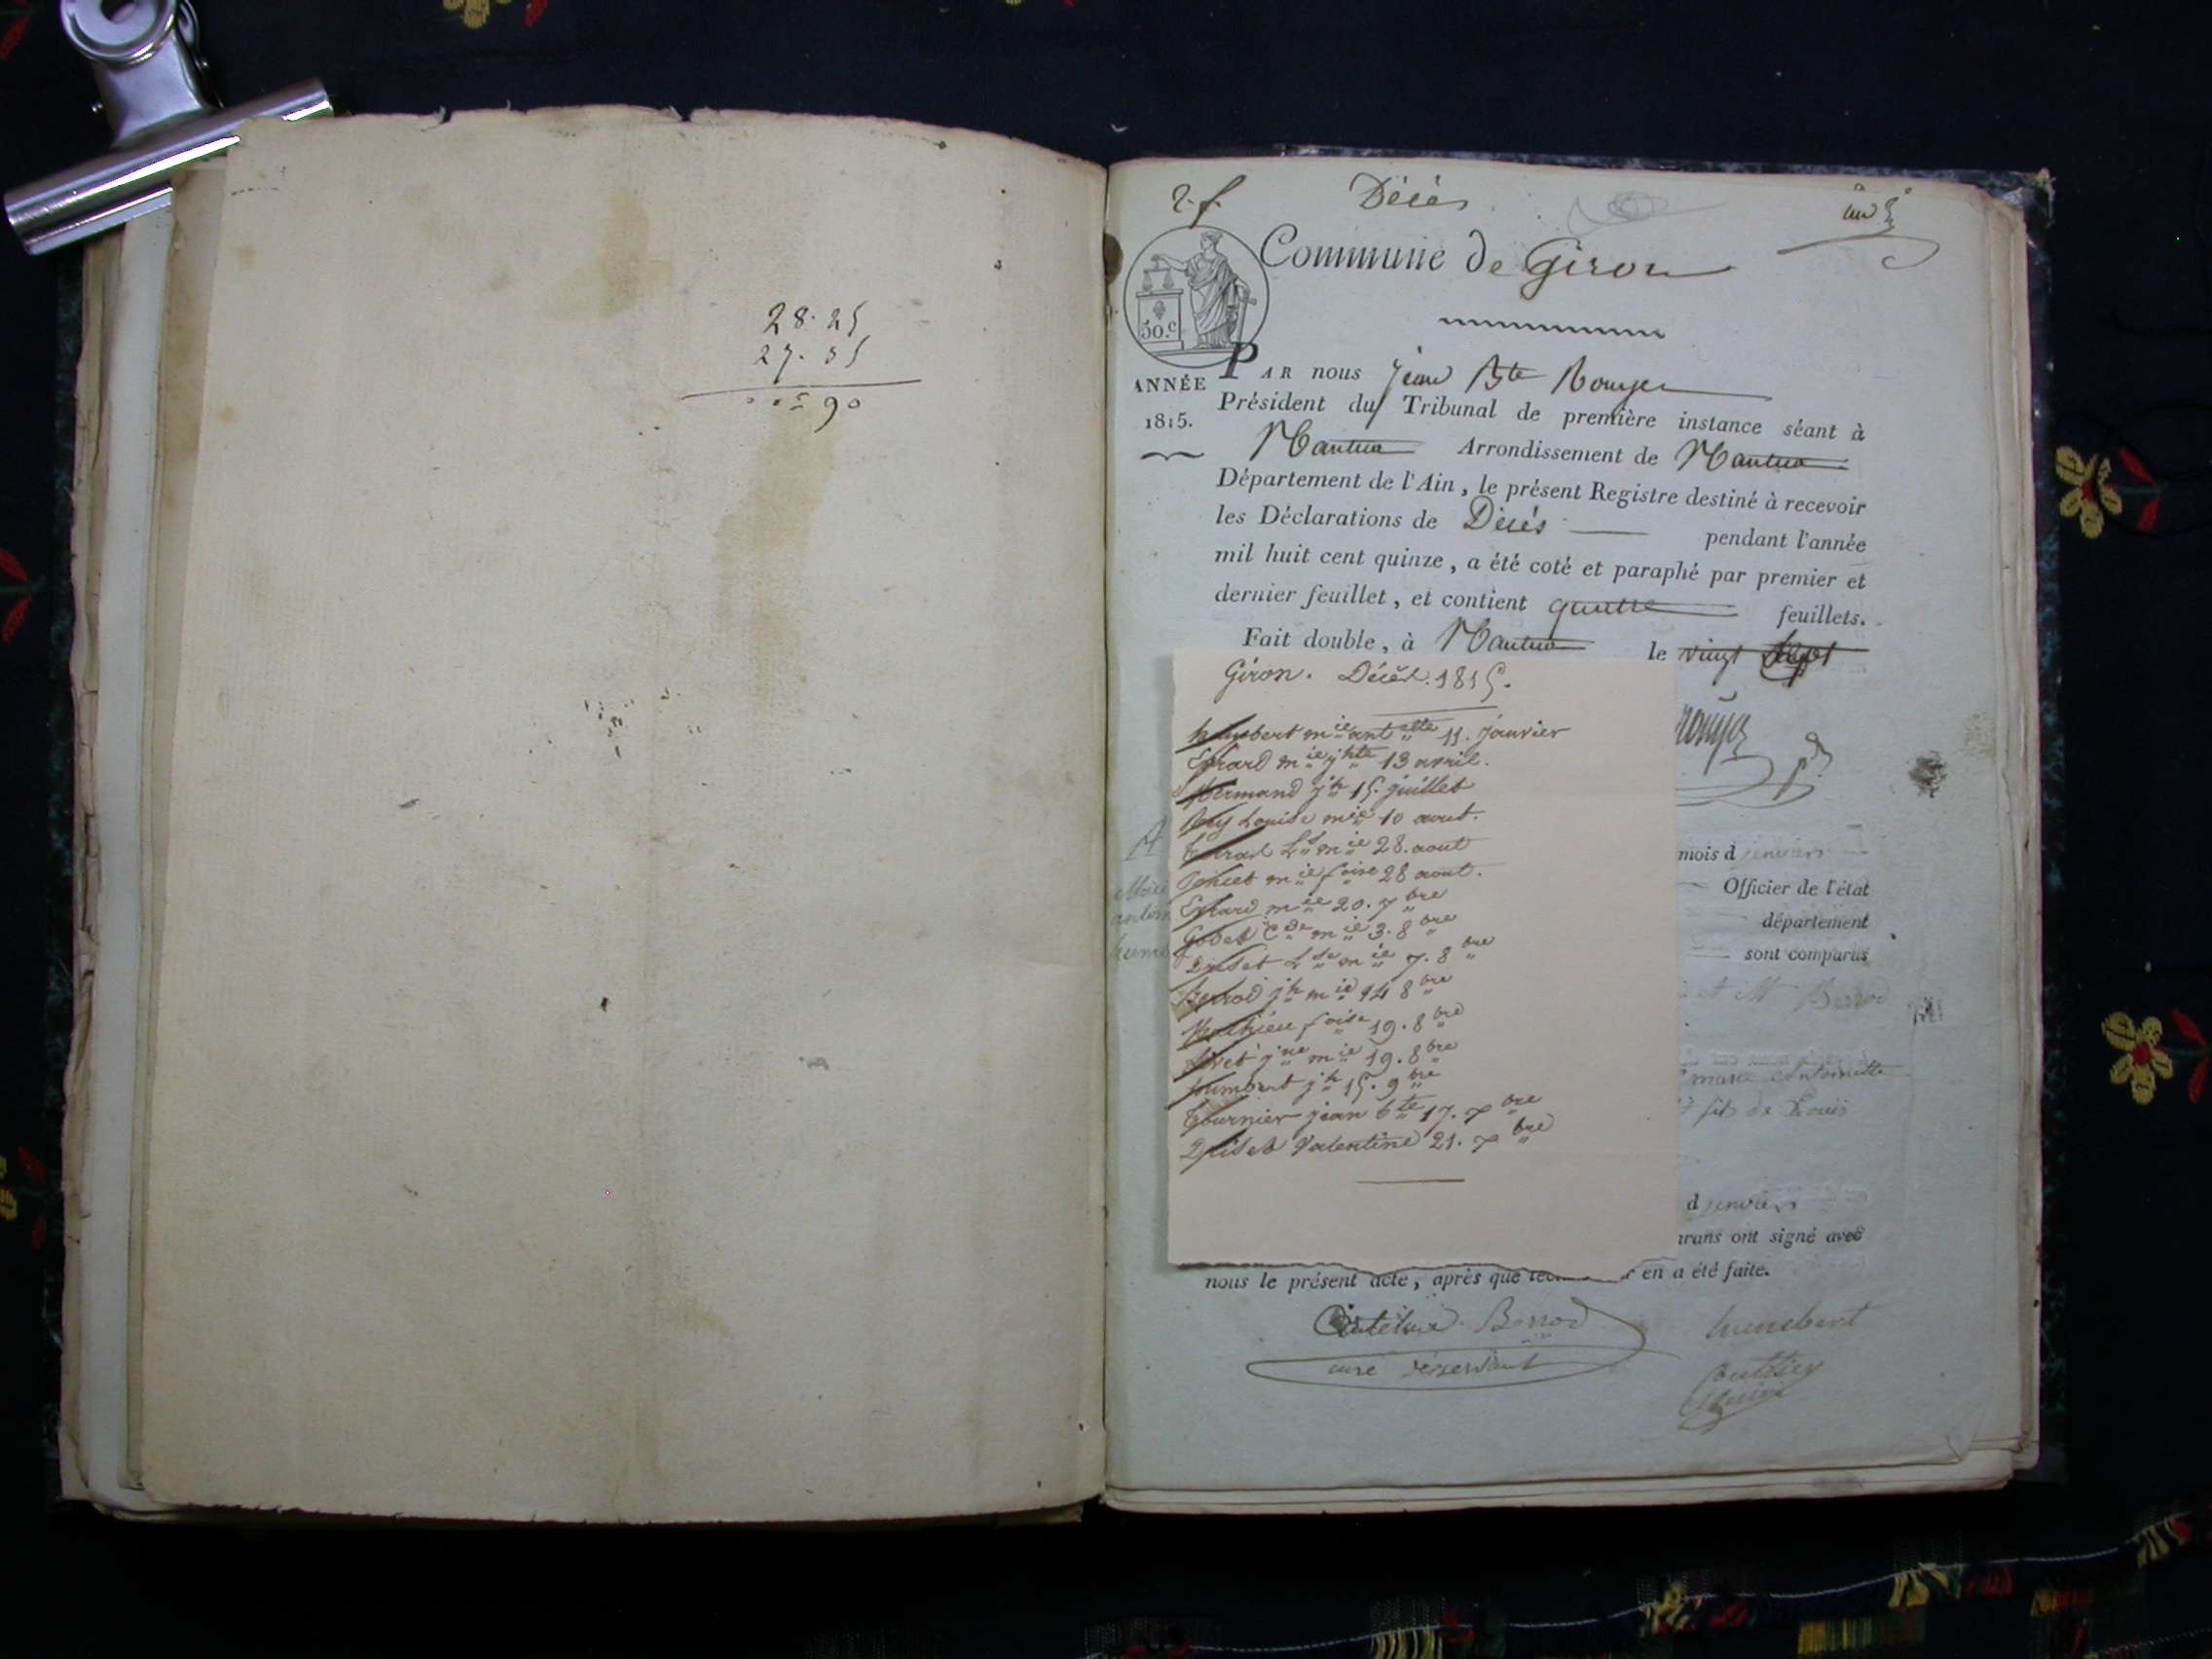 28. 25
27. 35
90
2. f.
Décès
un
Commune de Giron
50.c
ANNÉE
1815.
PAR nous Jean Bte Rouyer
Président du Tribunal de première instance séant à
Nantua Arrondissement de Nantua
Département de l'Ain, le présent Registre destiné à recevoir
les Déclarations de Décès pendant l'année
mil huit cent quinze, a été coté et paraphé par premier et
dernier feuillet, et contient quatre feuillets.
Fait double, à Nantua le vingt
Giron. Décès. 1815.
humbert mie antette 11. janvier
Evrard mie jhte 13 avril.
Mermand jh 15. juillet
Louise mie 10 aout.
Lse mie 28. aout
mie foise 28 aout.
Evrard mie 20. 7bre
Godet Cde mie 3. 8bre
Lse mie 7. 8bre
Berrod jh mie 14 8bre
Mathieu foise 19. 8bre
jne mie 19. 8bre
humbert jh 15. 9bre
tournier jean bte 17. 7bre
valentine 21. 7bre
mois d janvier
Officier de l'état
département
sont comparus
et Mr Berrod
marie Antoinette
fils de Louis
d janvier
arans ont signé avec
nous le présent acte, après que en a été faite.
Berrod
curé desservant
humbert